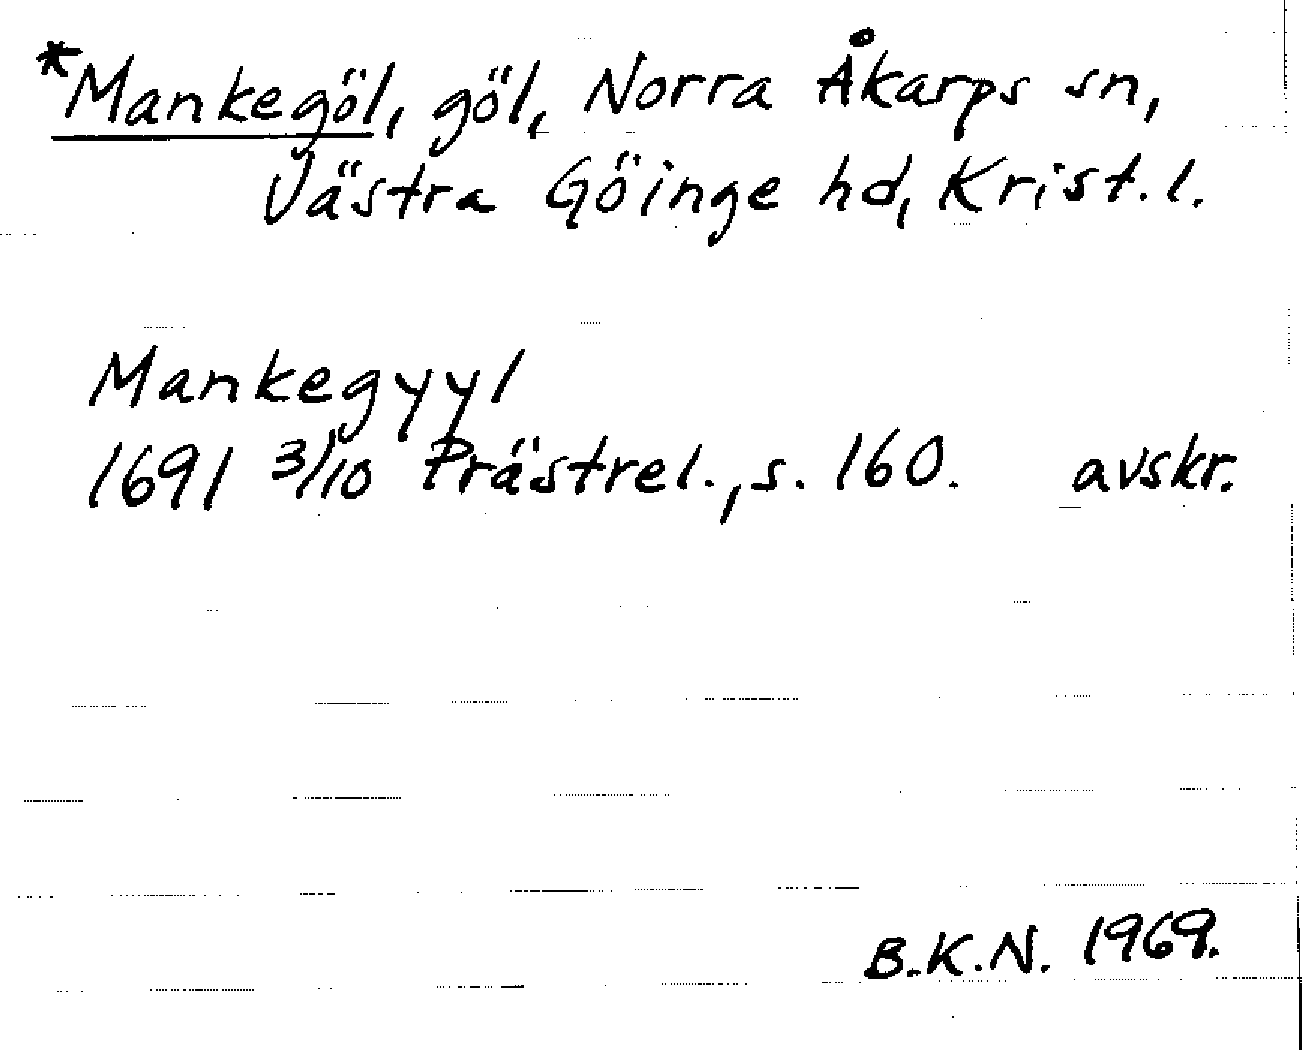 *Mankegöl, göl, Norra Åkarps sn,
Västra Göinge hd, Krist. l.
Mankegyyl
1691 3/10 Prästrel., s. 160. avskr.
B.K.N. 1969.